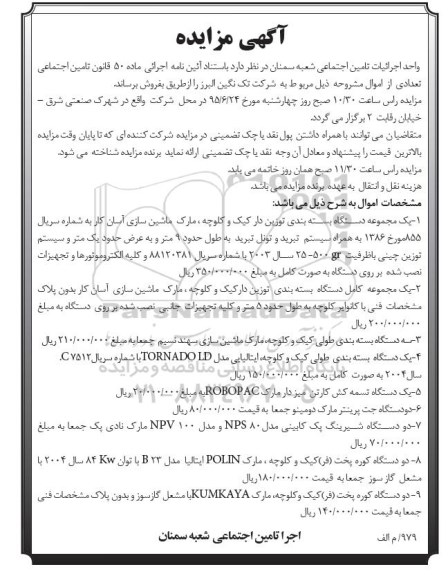 آگهی مزایده
واحد اجرائیات تامین اجتماعی شعبه سمنان در نظر دارد باستناد آئین نامه اجرائی ماده ۵۰ قانون تامین اجتماعی
تعدادی از اموال مشروحه ذیل مربوط به شرکت تک نگین البرز را ازطریق بفروش برساند.
مزایده راس ساعت ۱۰/۳۰ صبح روز چهارشنبه مورخ ۹۵/۶/۲۴ در محل شرکت واقع در شهرک صنعتی شرق -
خیابان رقابت ۲ برگزار می گردد.
متقاضیان می توانند با همراه داشتن پول نقد یا چک تضمینی در مزایده شرکت کننده ای که تا پایان وقت مزایده
بالاترین قیمت را پیشنهاد و معادل آن وجه نقد یا چک تضمینی ارائه نماید برنده مزایده شناخته می شود.
مزایده راس ساعت ۱۱/۳۰ صبح همان روز خاتمه می یابد.
هزینه نقل و انتقال به عهده برنده مزایده می باشد.
مشخصات اموال به شرح ذیل می باشد:
۱-یک مجموعه دستگاه بسته بندی توزین دار کیک و کلوچه ، مارک ماشین سازی آسان کار به شماره سریال
۸۵۵مورخ ۱۳۸۶ به همراه سیستم تبرید و تونل تبرید به طول حدود ۹ متر و به عرض حدود یک متر و سیستم
توزین چینی باظرفیت ۵۰۰ gr- ۲۵ ســال ۲۰۰۳ با شماره سریال ۸۸۱۲۰۳۸۱ و کلیه الکتروموتورها و تجهیزات
نصب شده بر روی دستگاه به صورت کامل به مبلغ ۳۵۰/۰۰۰/۰۰۰ ریال
۲-یک مجموعه کامل دستگاه بسته بندی توزین دارکیک و کلوچه، مارک ماشین سازی آسان کار بدون پلاک
مشخصات فنی با کانوایر کلوچه به طول حدود ۵ متر و کلیه تجهیزات جانبی نصب شده بر روی دستگاه به مبلغ
۲۰۰/۰۰۰/۰۰۰ ریال
۳-سه دستگاه بسته بندی طولی کیک و کلوچه،مارک ماشین سازی سهند نسیم جمعا به مبلغ ۲۱۰/۰۰۰/۰۰۰ ریال
۴-یک دستگاه بسته بندی طولی کیک و کلوچه، ایتالیایی مدل TORNADO LD با شماره سریال C.۷۵۱۲
سال۲۰۰۴ به صورت کامل به مبلغ ۱۵۰/۰۰۰/۰۰۰ ریال
۵-یک دستگاه تسمه کش کارتن میز دار مارک ROBOPAC به مبلغ ۲۰/۰۰۰/۰۰۰ ریال
۶-دودستگاه جت پرینتر مارک دومینو جمعا به قیمت ۸۰/۰۰۰/۰۰۰ ریال
۷-دو دستـگاه شــیرینگ پک کابینی مدل NPS ۸۰ و مدل NPV ۱۰۰ مارک نادی پک جمعا به مبلغ
۷۰/۰۰۰/۰۰۰ ریال
۸- دو دستگاه کوره پخت (فر)کیک و کلوچه ، مارک POLIN ایتالیا مدل B ۲۳ با توان ۸۴ Kw سال ۲۰۰۴ با
مشعل گاز سوز جمعا به قیمت ۱۸۰/۰۰۰/۰۰۰ریال
۹- دو دستگاه کوره پخت (فر)کیک و کلوچه، مارک KUMKAYA با مشعل گازسوز و بدون پلاک مشخصات فنی
جمعا به قیمت ۱۴۰/۰۰۰/۰۰۰ ریال
۹۷۹/ م الف
اجرا تامین اجتماعی شعبه سمنان